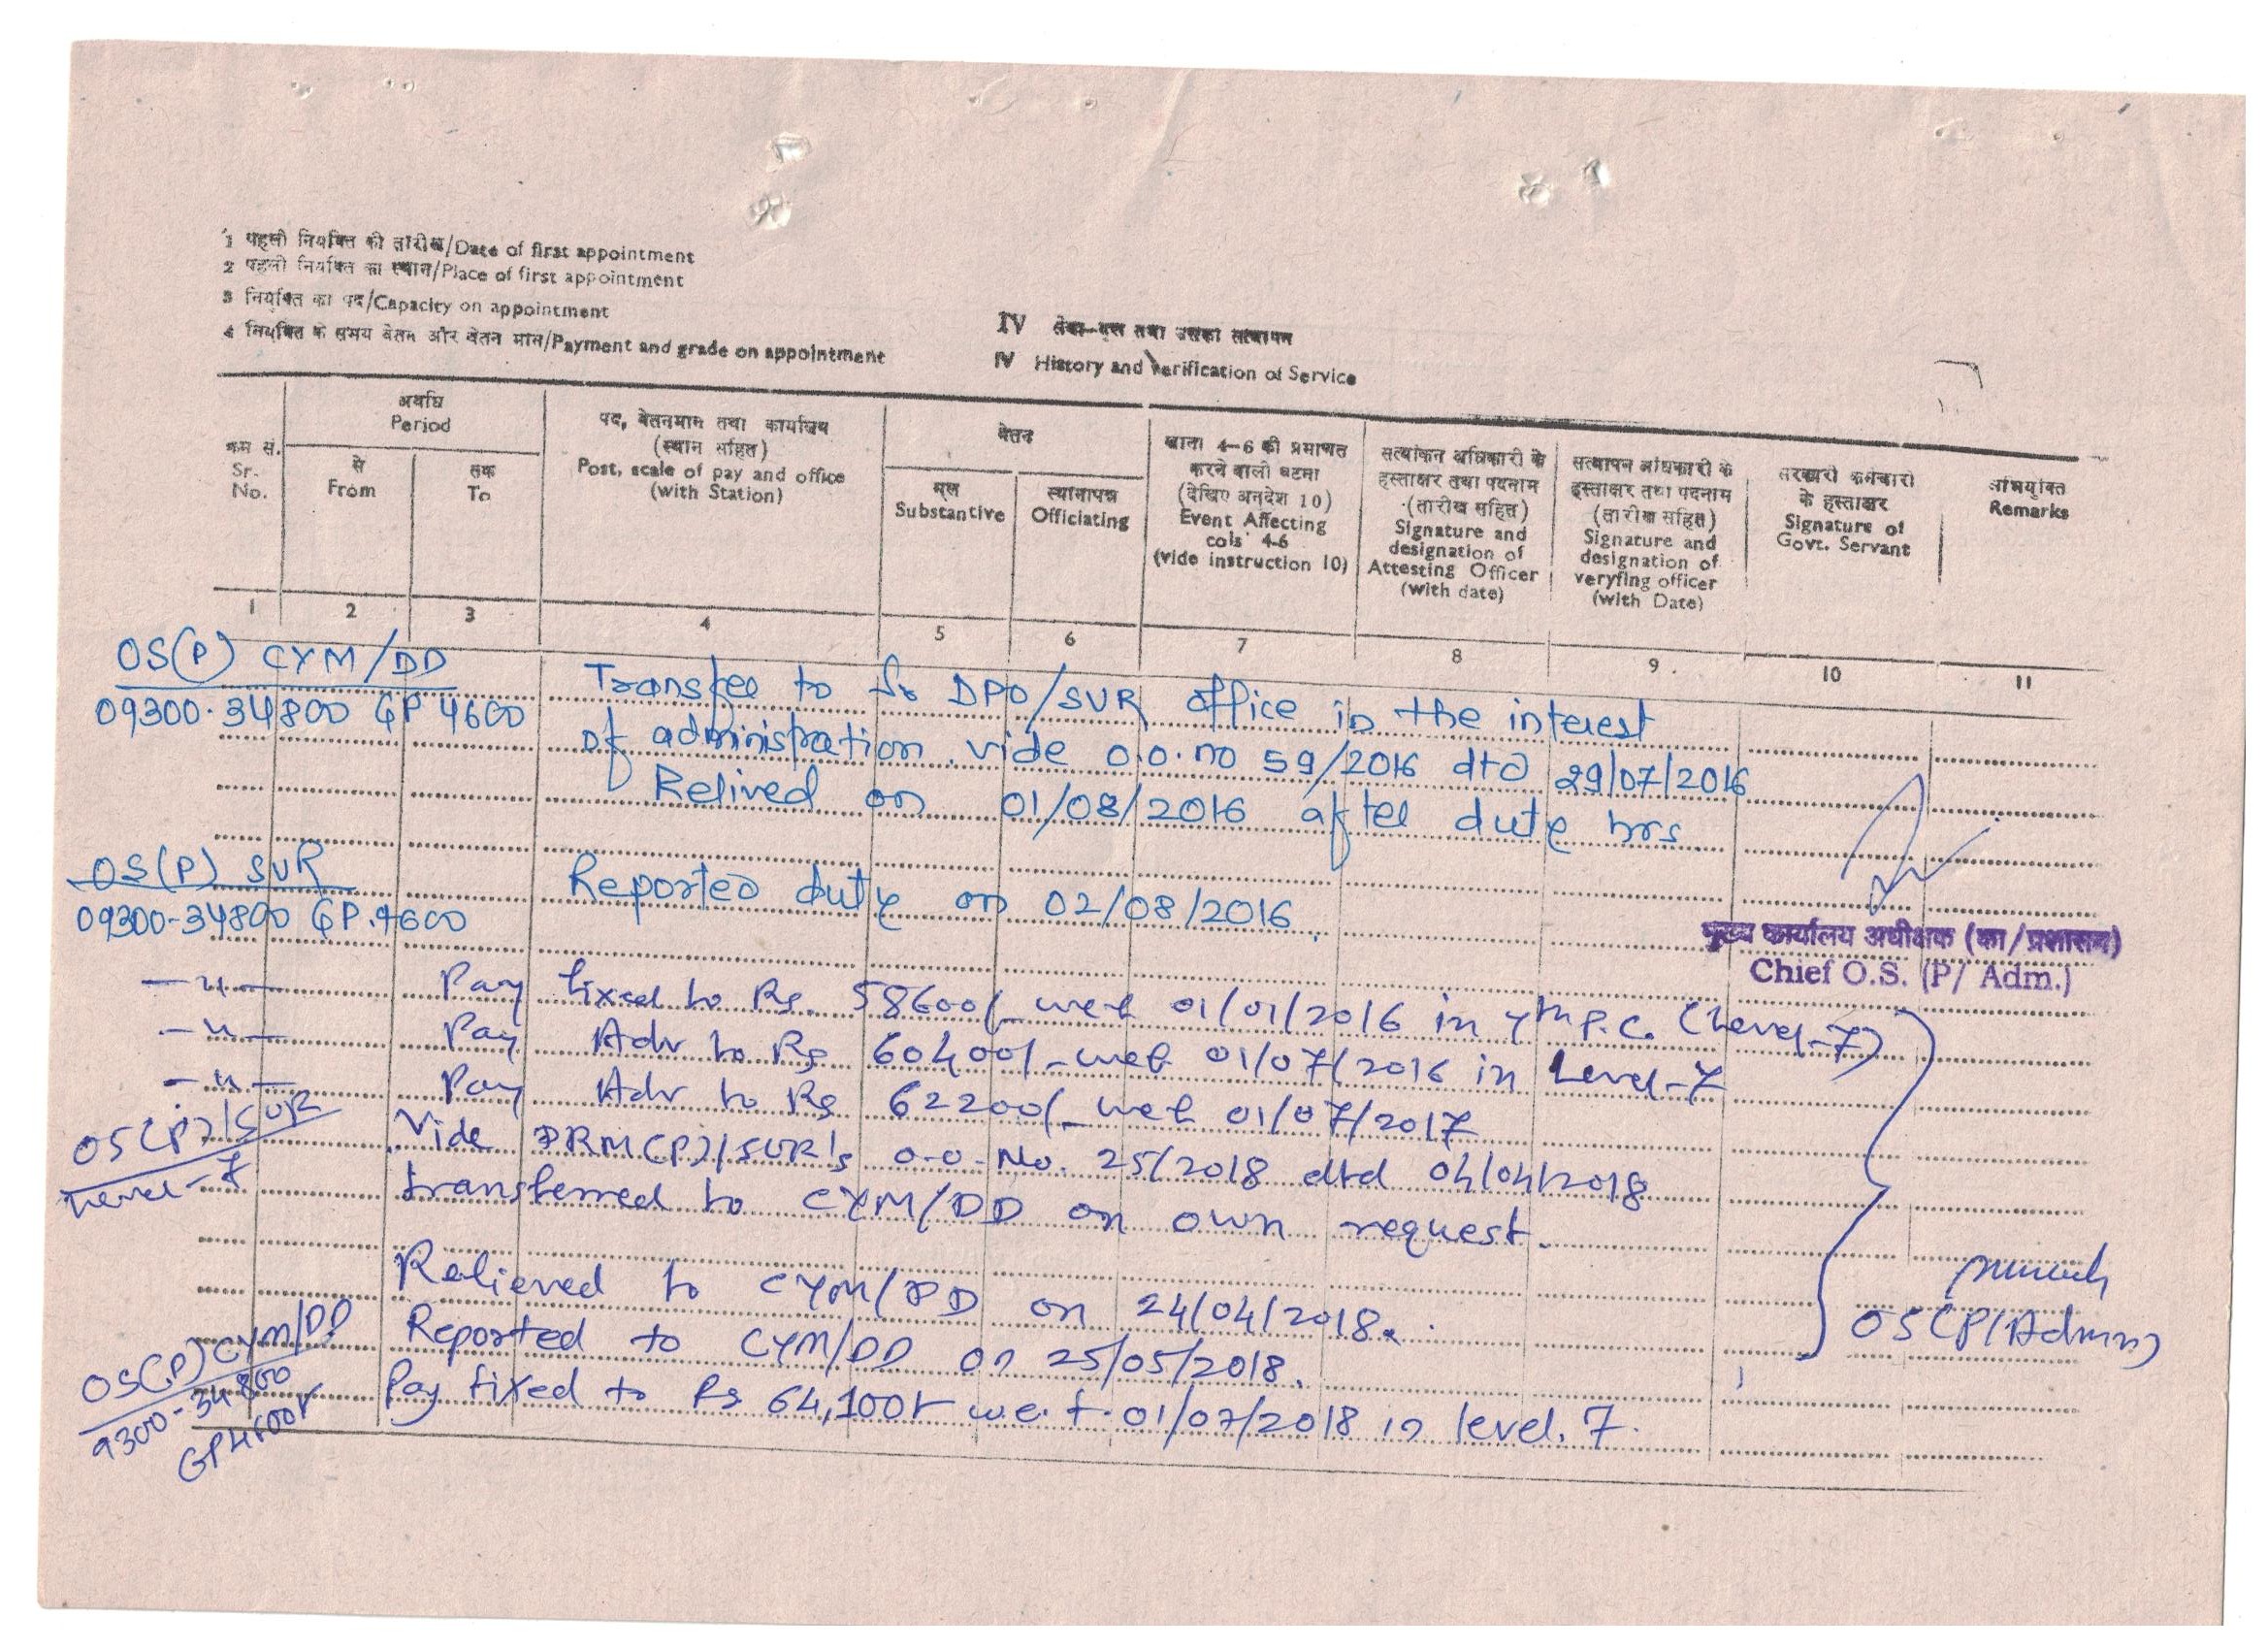 1 पहली नियुक्ति की तारीख/Date of first appointment
2 पहली नियुक्ति का स्थान/Place of first appointment
3 नियुक्ति का पद/Capacity on appointment
4 नियुक्ति के समय वेतन और वेतन मान/Payment and grade on appointment
IV सेवा-वृत्त तथा उसका सत्यापन
IV History and Verification of Service
क्रम सं.
Sr.
No.
अवधि
Period
से
From
तक
To
पद, वेतनमान तथा कार्यालय
(स्थान सहित)
Post, scale of pay and office
(with Station)
वेतन
मूल
Substantive
स्थानापन्न
Officiating
खाता 4-6 की प्रमाणित
करने वाली घटना
(देखिए अनदेश 10)
Event Affecting
cols 4-6
(vide instruction 10)
सत्यांकन अधिकारी के
हस्ताक्षर तथा पदनाम
(तारीख सहित)
Signature and
designation of
Attesting Officer
(with date)
सत्यापन अधिकारी के
हस्ताक्षर तथा पदनाम
(तारीख सहित)
Signature and
designation of
veryfing officer
(with Date)
सरकारी कर्मचारी
के हस्ताक्षर
Signature of
Govt. Servant
अभियुक्ति
Remarks
1 2 3 4 5 6 7 8 9. 10 11
OS(P) CYM/DD
09300-34800 GP 4600
Transfee to Sr DPO/SUR office in the interest
of administration vide o.o.no 59/2016 dtd 29/07/2016
Relived on 01/08/2016 aftee dute hrs
OS(P) SUR
09300-34800 GP.4600
Reported dute on 02/08/2016.
मुख्य कार्यालय अधीक्षक (का/प्रशासन)
Chief O.S. (P/ Adm.)
—〃— Pay fixed to Rs. 58600/- wef 01/01/2016 in 7th P.C. (Level-7)
—〃— Pay Adv to Rs 60400/- wef 01/07/2016 in Level-7
—〃— Pay Adv to Rs 62200/- wef 01/07/2017
OS(P)/SUR
Level-7
Vide DRM(P)/SUR's o.o. No. 25/2018 dtd 04/04/2018
transferred to CYM/DD on own request.
Relieved to CYM/DD on 24/04/2018.
OS(P/Admn)
OS(P) CYM/DD
9300-34800
GP4600/-
Reported to CYM/DD on 25/05/2018.
Pay fixed to Rs 64,100/- w.e.f. 01/07/2018 in level. 7.